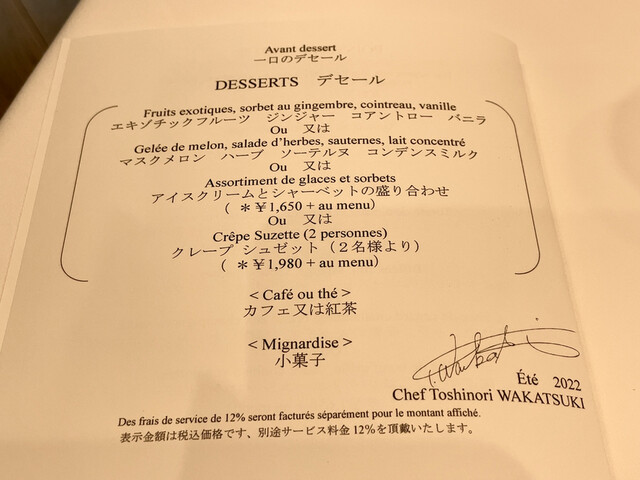 Avant dessert
一口のデセール
DESSERTS デセール
Fruits exotiques, sorbet au gingembre, cointreau, vanille
エキゾチックフルーツ ジンジャー コアントロー バニラ
Ou 又は
Gelée de melon, salade d'herbes, sauternes, lait concentré
マスクメロン ハーブ ソーテルヌ コンデンスミルク
Ou 又は
Assortiment de glaces et sorbets
アイスクリームとシャーベットの盛り合わせ
( ＊￥1,650 + au menu)
Ou 又は
Crêpe Suzette (2 personnes)
クレープ シュゼット（２名様より）
( ＊￥1,980 + au menu)
< Café ou thé >
カフェ又は紅茶
< Mignardise >
小菓子
Été 2022
Chef Toshinori WAKATSUKI
Des frais de service de 12% seront facturés séparément pour le montant affiché.
表示金額は税込価格です、別途サービス料金12%を頂戴いたします。